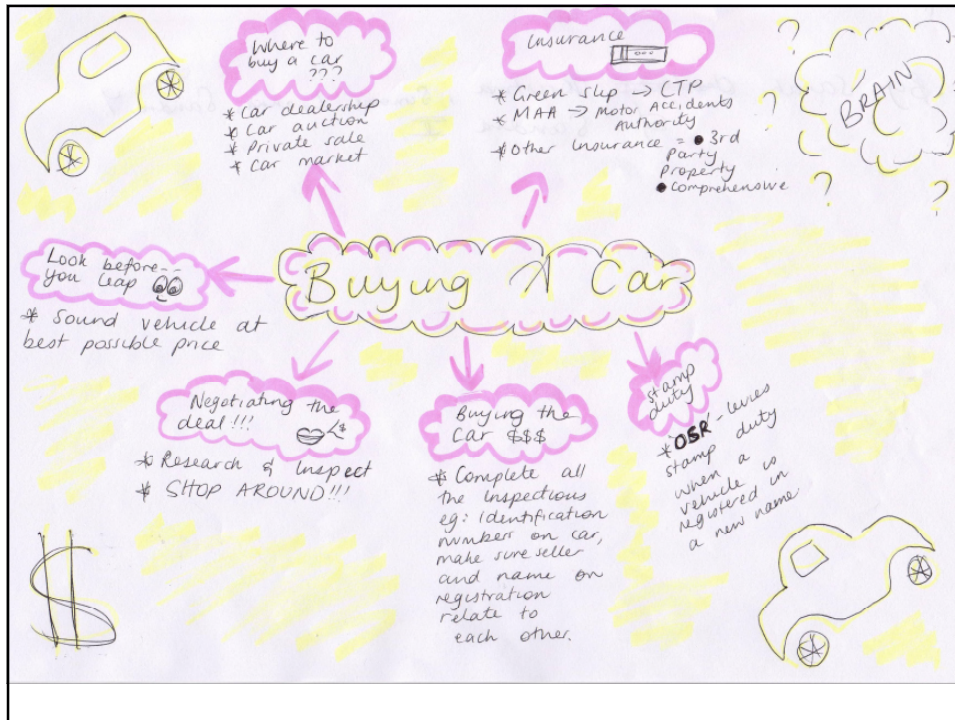 Where to
buy a car
???
* Car dealership
* Car auction
* Private sale
* Car market
Insurance
* Green slip → CTP
* MAA → Motor Accidents
Authority
* Other Insurance = • 3rd
Party
Property
• Comprehensive
? ? ? ?
BRAIN
Buying A Car
Look before--
you leap
* Sound vehicle at
best possible price
Negotiating the
deal!!!
* Research & Inspect
* SHOP AROUND!!!
Buying the
Car $$$
* Complete all
the inspections
eg: identification
numbers on car,
make sure seller
and name on
registration
relate to
each other.
Stamp
duty
* OSR - levies
stamp duty
when a
vehicle is
registered in
a new name
$